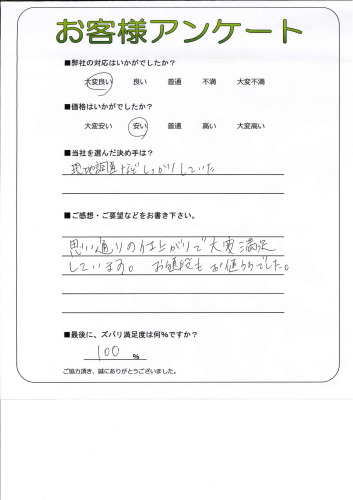 お客様アンケート
■弊社の対応はいかがでしたか？
大変良い 良い 普通 不満 大変不満
■価格はいかがでしたか？
大変安い 安い 普通 高い 大変高い
■当社を選んだ決め手は？
現地調査などしっかりしていた
■ご感想・ご要望などをお書き下さい。
思い通りの仕上がりで大変満足
しています。 お値段もお値うちでした。
■最後に、ズバリ満足度は何%ですか？
100 %
ご協力頂き、誠にありがとうございました。